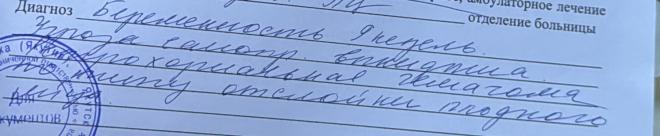 амбулаторное лечение
Диагноз Беременность 9 недель.
отделение больницы
Угроза самопр. выкидыша.
Ретрохориальная гематома
по типу отслойки плодного
яйца.
(Якутск
Для
документов